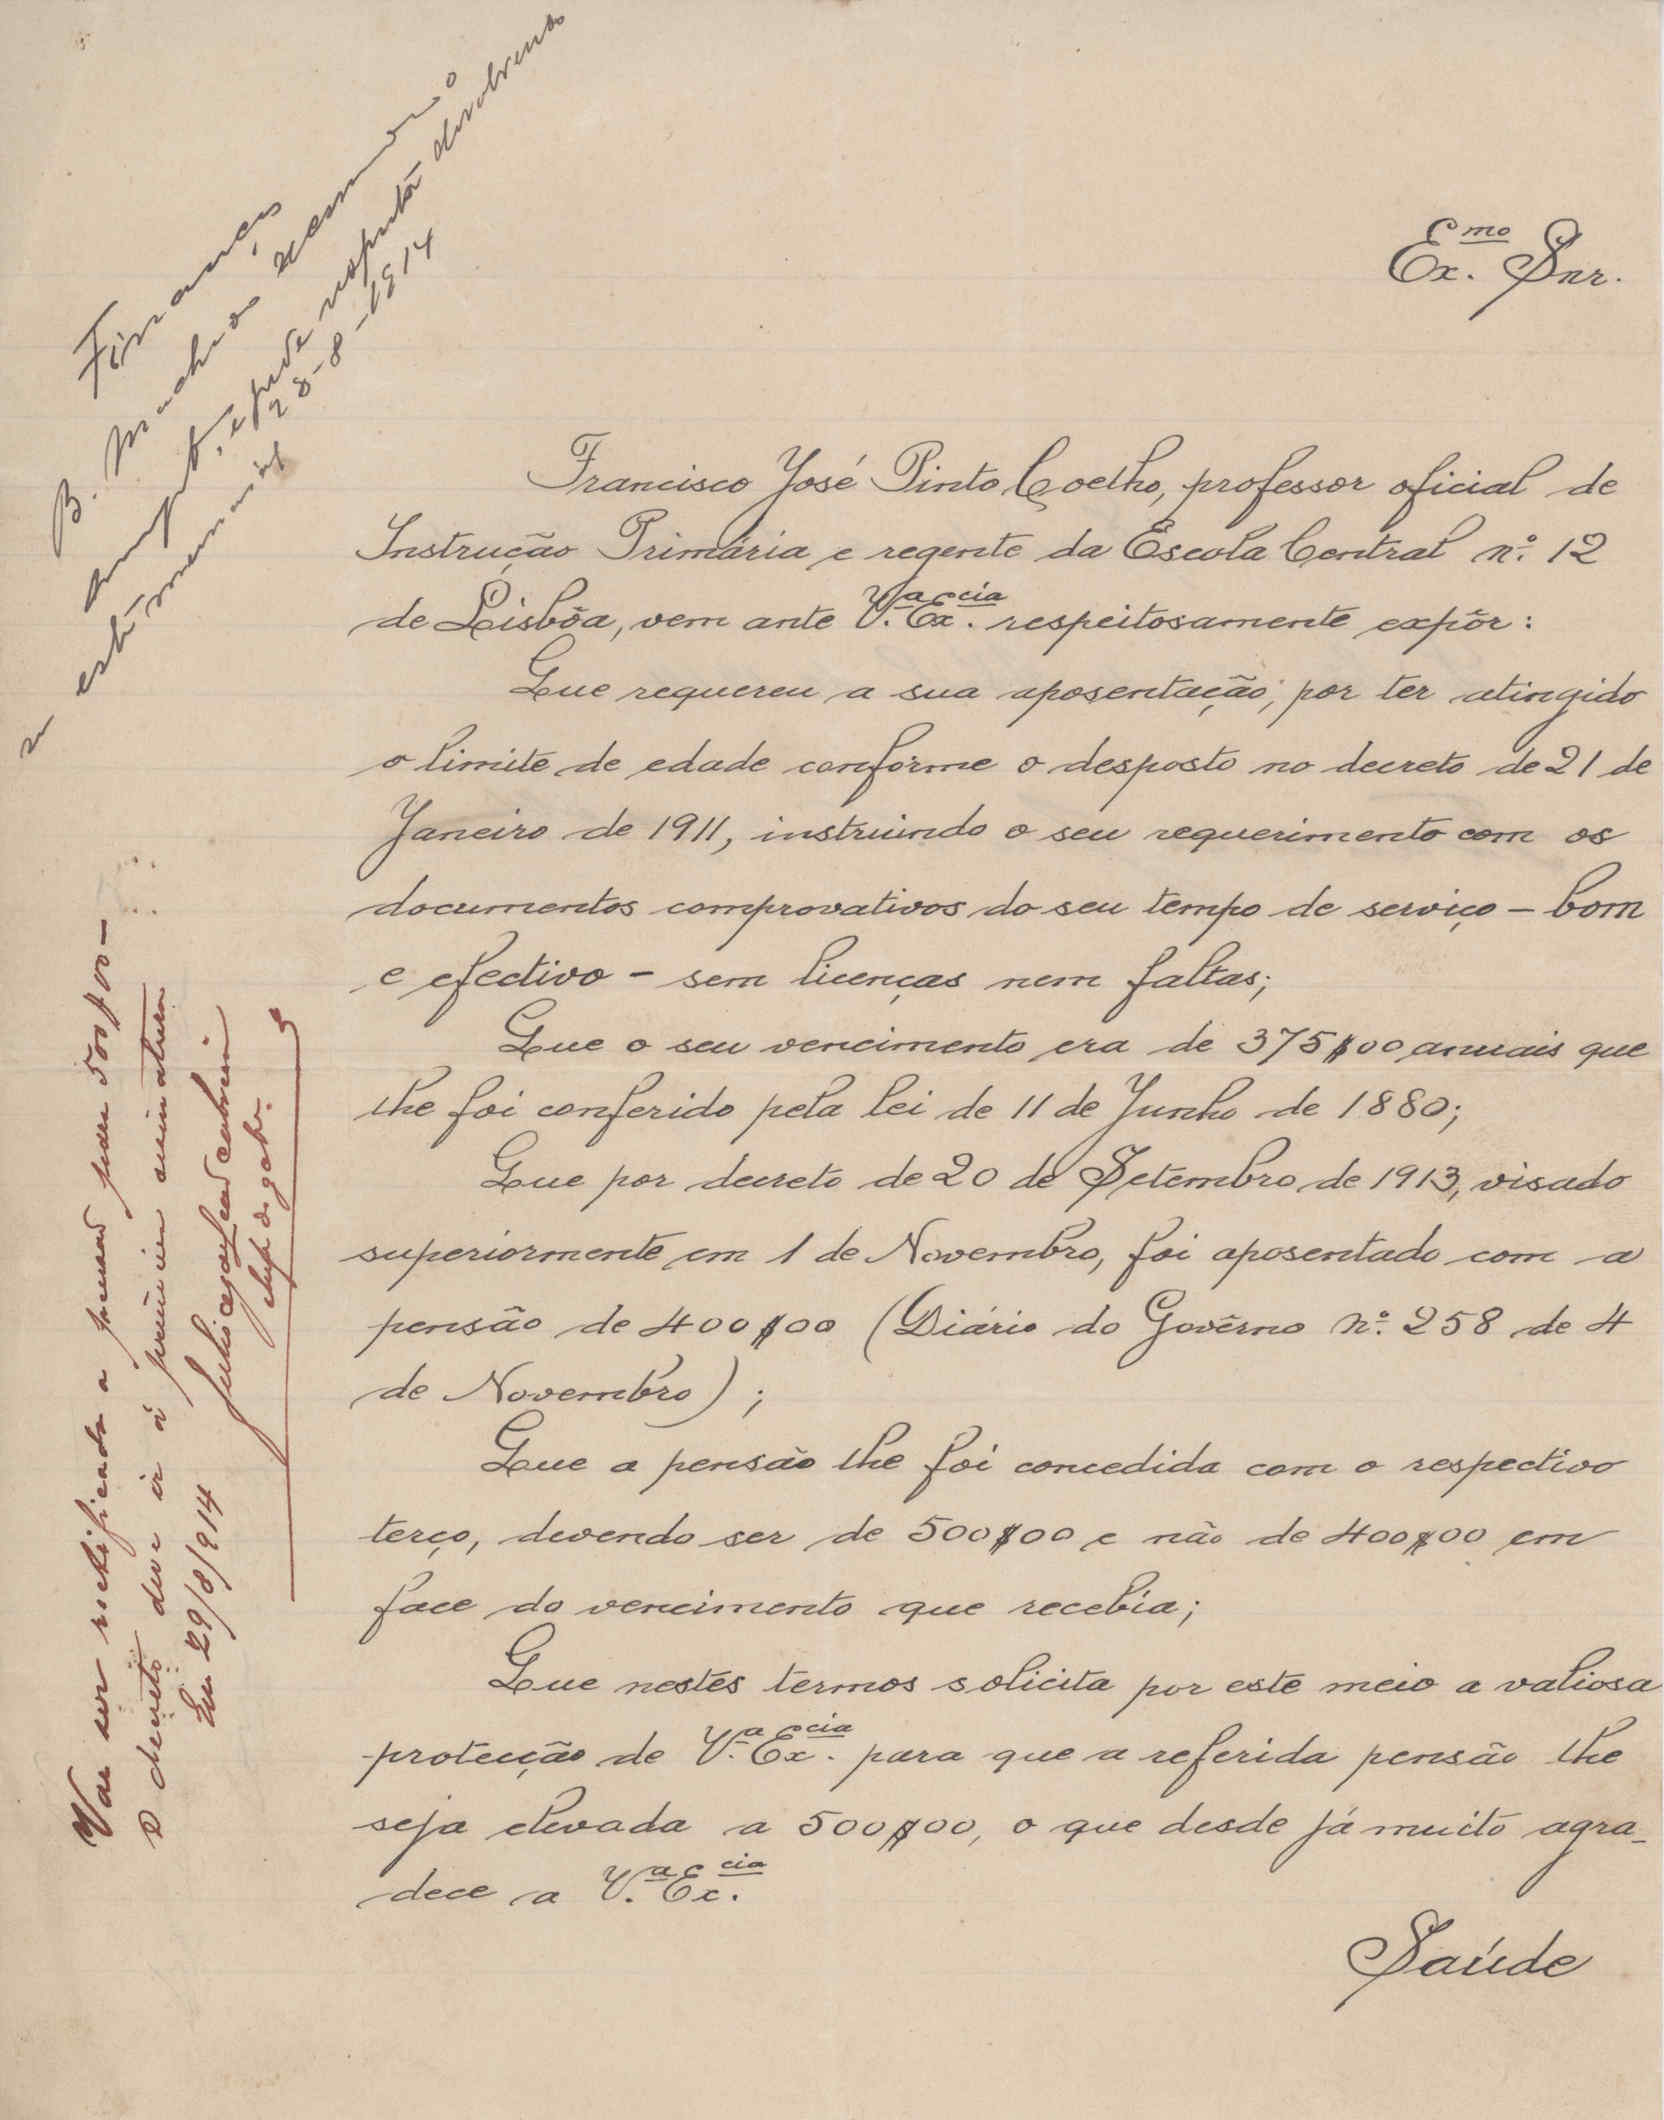 Finanças
B. Machado
e pede resposta devolvendo
28-8-1914
este memorial
Ex.mo Snr.
Francisco José Pinto Coelho, professor oficial de
Instrução Primária e regente da Escola Central n.º 12
de Lisbôa, vem ante V.ª Ex.cia respeitosamente expôr:
Que requereu a sua aposentação, por ter atingido
o limite de edade confórme o desposto no decreto de 21 de
Janeiro de 1911, instruindo o seu requerimento com os
documentos comprovativos do seu tempo de serviço – bom
e efectivo – sem licenças nem faltas;
Que o seu vencimento era de 375$00 anuais que
lhe foi conferido pela lei de 11 de Junho de 1880;
Que por decreto de 20 de Setembro de 1913, visado
superiormente em 1 de Novembro, foi aposentado com a
pensão de 400$00 (Diário do Govêrno n.º 258 de 4
de Novembro);
Que a pensão lhe foi concedida com o respectivo
terço, devendo ser de 500$00 e não de 400$00 em
face do vencimento que recebia;
Que nestes termos solicita por este meio a valiosa
protecção de V.ª Ex.cia para que a referida pensão lhe
seja elevada a 500$00, o que desde já muito agra-
dece a V.ª Ex.cia
Saúde
Vae ser rectificada a pensão para 500$00 –
O decreto deve ir á primeira assinatura
Em 29/8/914